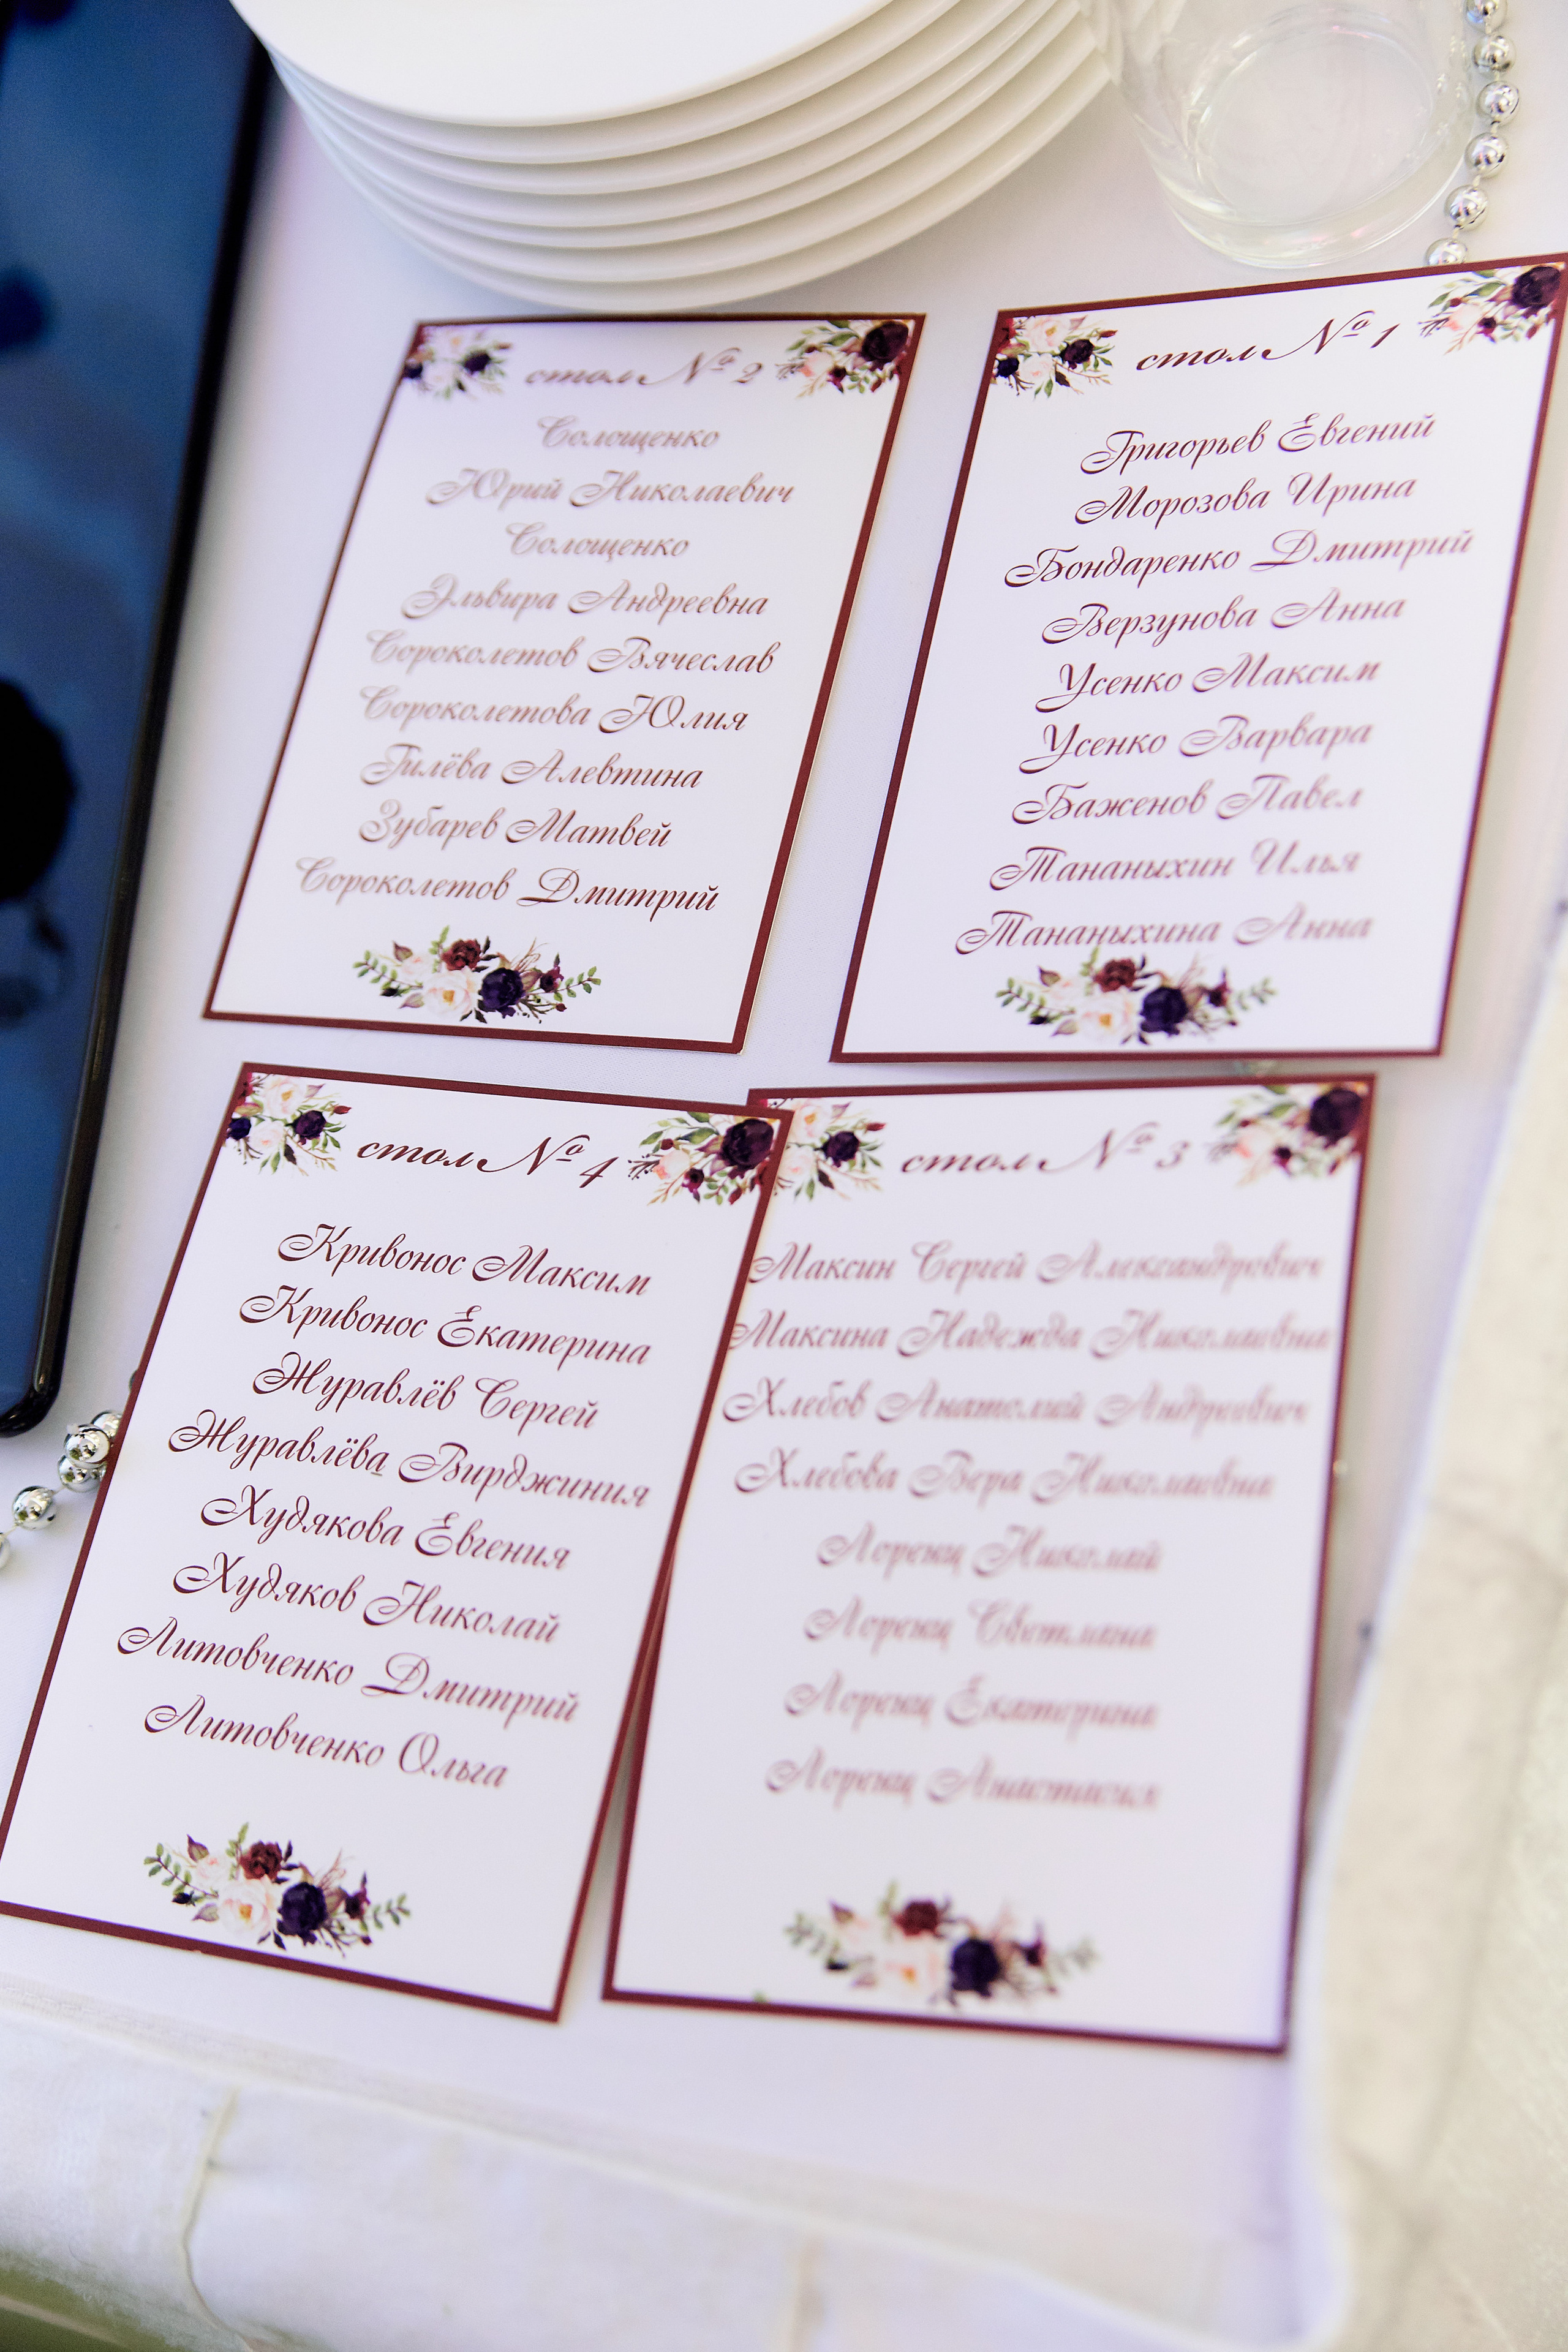 стол № 2
Солощенко
Юрий Николаевич
Солощенко
Эльвира Андреевна
Сороколетов Вячеслав
Сороколетова Юлия
Гилёва Алевтина
Зубарев Матвей
Сороколетов Дмитрий
стол № 1
Григорьев Евгений
Морозова Ирина
Бондаренко Дмитрий
Верзунова Анна
Усенко Максим
Усенко Варвара
Баженов Павел
Тананыхин Илья
Тананыхина Анна
стол № 4
Кривонос Максим
Кривонос Екатерина
Журавлёв Сергей
Журавлёва Вирджиния
Худякова Евгения
Худяков Николай
Литовченко Дмитрий
Литовченко Ольга
стол № 3
Максин Сергей Александрович
Максина Надежда Николаевна
Хлебов Анатолий Андреевич
Хлебова Вера Николаевна
Лоренц Николай
Лоренц Светлана
Лоренц Екатерина
Лоренц Анастасия